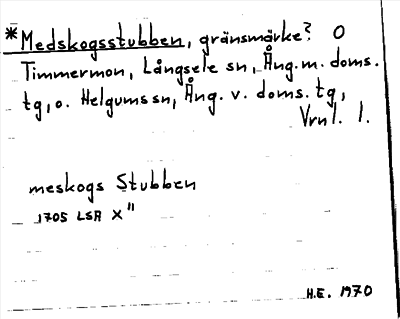 *Medskogsstubben, gränsmärke? O
Timmermon, Långsele sn, Ång. m. doms.
tg, o. Helgums sn, Ång. v. doms. tg,
Vrnl. l.
meskogs Stubben
1705 LSA X"
H.E. 1970